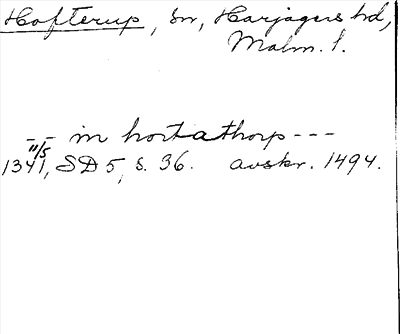 Hofterup, sn, Harjagers hd,
Malm. l.
- - in hortathorp - - -
11/5
1341, SD 5, s. 36. avskr. 1494.